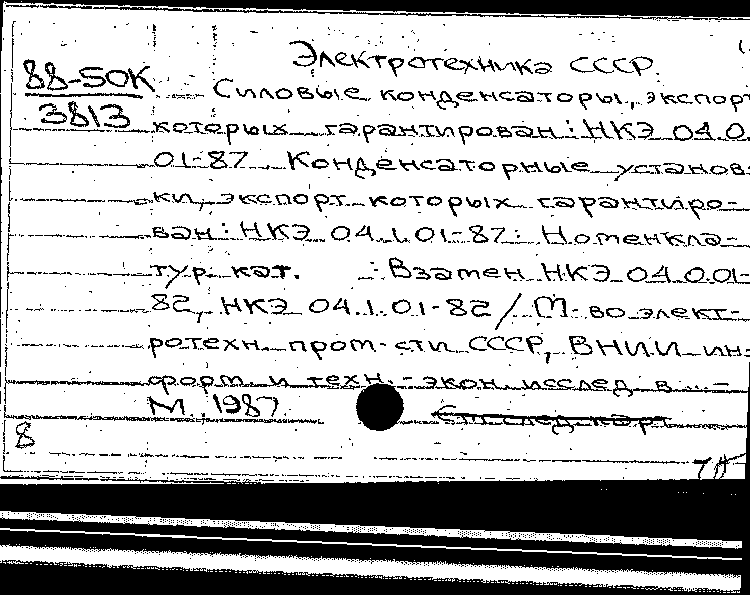 Электротехника СССР.
88-50К
3813
Силовые конденсаторы, экспорт
которых гарантирован: НКЭ 04.0.
01-87. Конденсаторные установ-
ки, экспорт которых гарантиро-
ван: НКЭ 04.1.01-87: Номенкла-
тур. кат. : Взамен НКЭ 04.0.01-
82, НКЭ 04.1.01-82 / М-во элект-
ротехн. пром-сти СССР, ВНИИ ин-
форм. и техн.-экон. исслед. в ... -
М., 1987.
См. след. карт
8